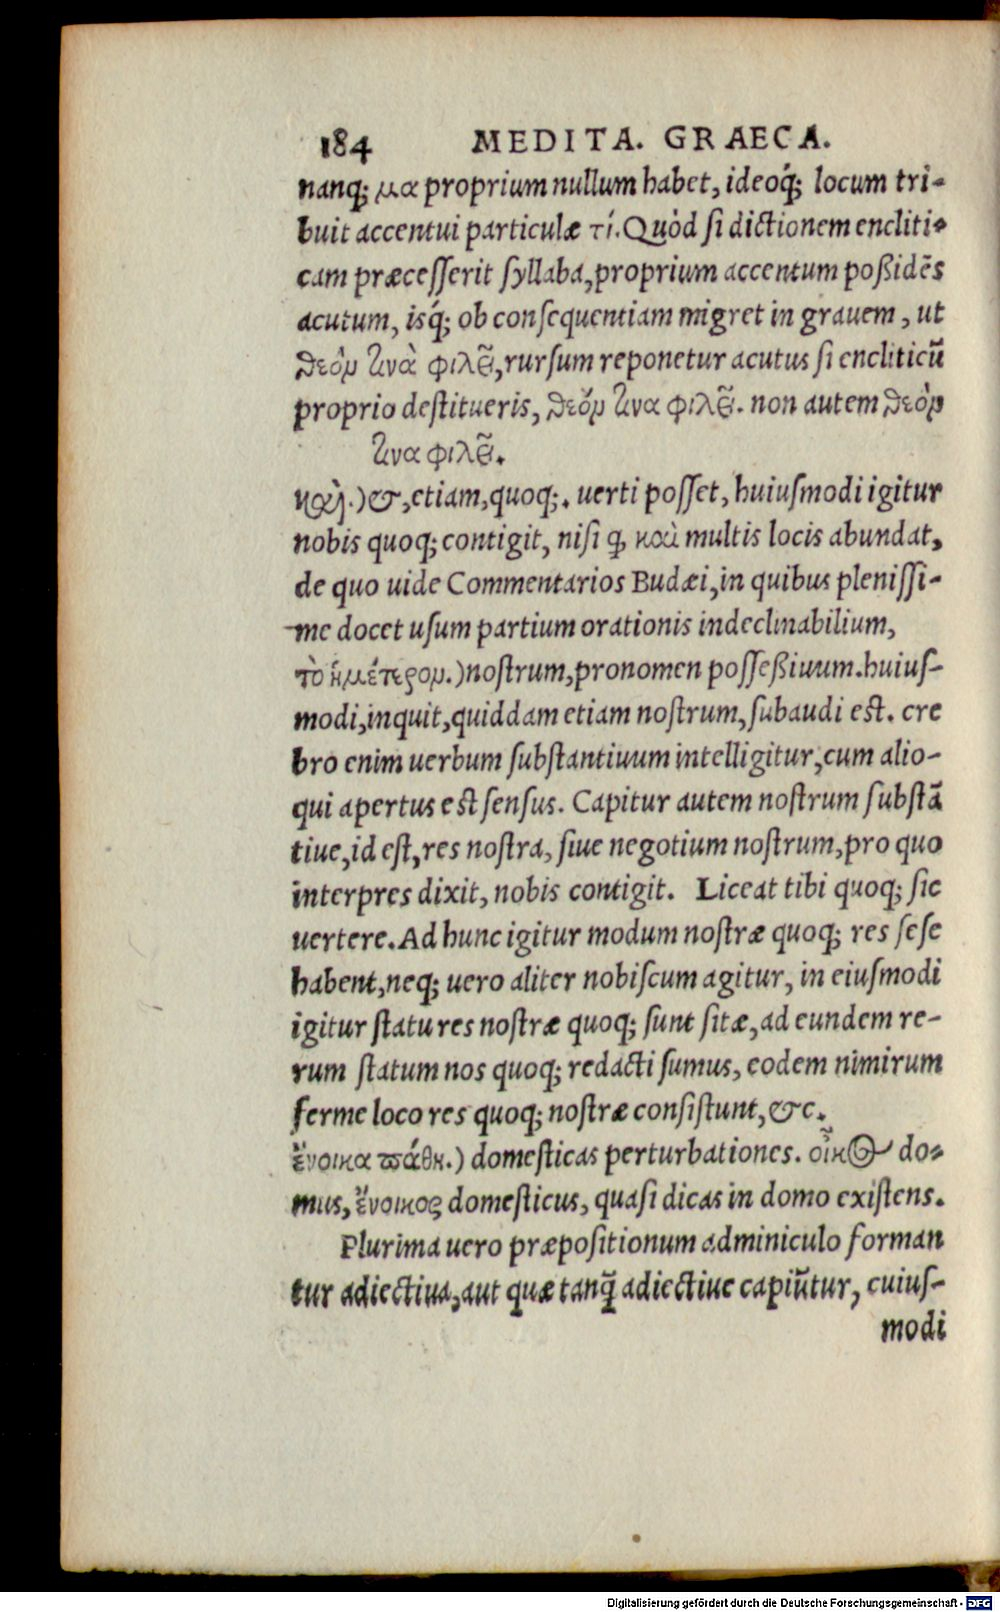 184 MEDITA. GRAECA.
nanq; μα proprium nullum habet, ideoq́; locum tri-
buit accentui particulæ τί. Quòd si dictionem encliti-
cam præcesserit syllaba, proprium accentum poßidēs
acutum, isq́; ob consequentiam migret in grauem, ut
θεὸν τινὰ φιλῶ, rursum reponetur acutus si encliticū
proprio destitueris, θεόν τινα φιλῶ. non autem θεὸν
τινα φιλῶ.
καὶ.) &, etiam, quoq;. uerti posset, huiusmodi igitur
nobis quoq; contigit, nisi q̃ καὶ multis locis abundat,
de quo uide Commentarios Budæi, in quibus plenissi-
me docet usum partium orationis indeclinabilium,
τὸ ἡμέτερον.) nostrum, pronomen posseßiuum. huius-
modi, inquit, quiddam etiam nostrum, subaudi est. cre
bro enim uerbum substantiuum intelligitur, cum alio-
qui apertus est sensus. Capitur autem nostrum substā
tiue, id est, res nostra, siue negotium nostrum, pro quo
interpres dixit, nobis contigit. Liceat tibi quoq; sic
uertere. Ad hunc igitur modum nostræ quoq; res sese
habent, neq; uero aliter nobiscum agitur, in eiusmodi
igitur statu res nostræ quoq; sunt sitæ, ad eundem re-
rum statum nos quoq; redacti sumus, eodem nimirum
ferme loco res quoq; nostræ consistunt, &c.
ἔνοικα πάθη.) domesticas perturbationes. οἶκος do-
mus, ἔνοικος domesticus, quasi dicas in domo existens.
Plurima uero præpositionum adminiculo forman
tur adiectiua, aut quæ tanq̃ adiectiue capiūtur, cuius-
modi
Digitalisierung gefördert durch die Deutsche Forschungsgemeinschaft - DFG